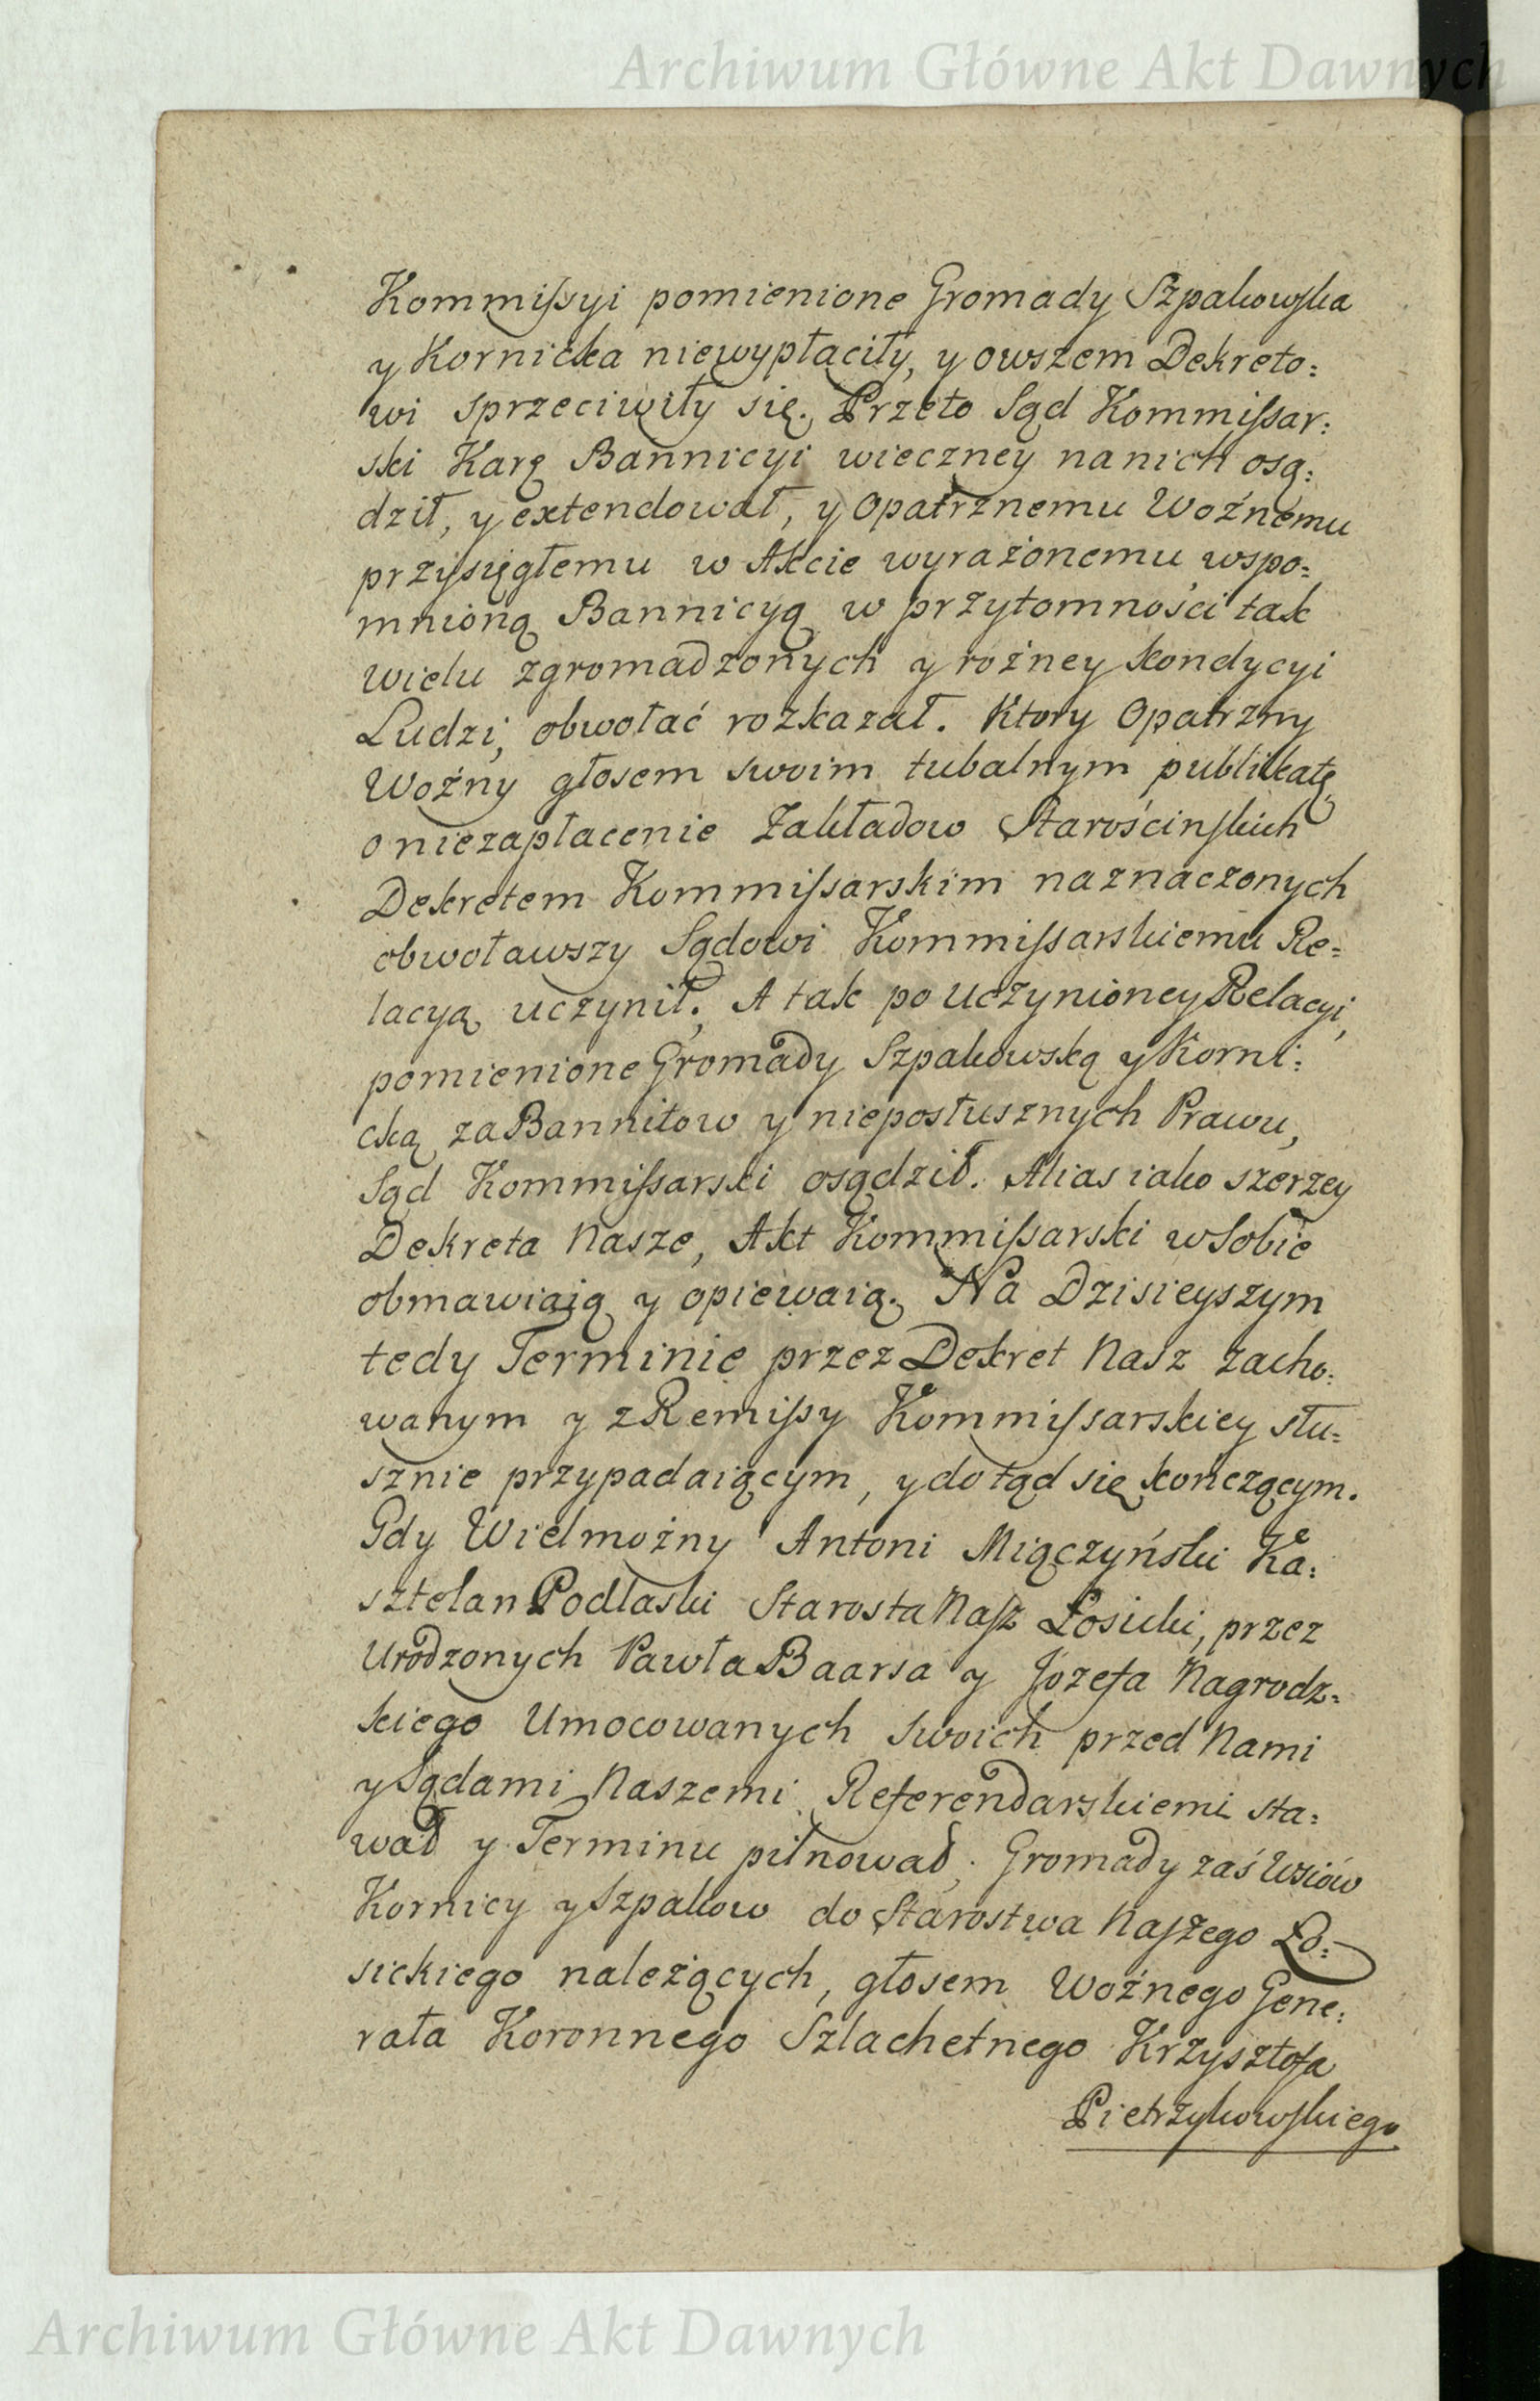 Archiwum Główne Akt Dawnych
Kommissyi pomienione Gromady Szpakowska
y Kornicka niewypłaciły, y owszem Dekreto:
wi sprzeciwiły się. Przeto Sąd Kommissar:
ski Karę Bannicyi wieczney na nich osą:
dził, y extendował, y Opatrznemu Woźnemu
przysięgłemu w Akcie wyrażonemu wspo:
mnioną Bannicyą w przytomności tak
wielu zgromadzonych y rożney kondycyi
Ludzi, obwołać rozkazał. Ktory Opatrzny
Woźny głosem swoim tubalnym publikatę
o niezapłacenie Zakładow Starościnskich
Dekretem Kommissarskim naznaczonych
obwoławszy Sądowi Kommissarskiemu Re:
lacyą uczynił; A tak po uczynioney Relacyi,
pomienione Gromady Szpakowską y Korni:
cką za Bannitow y nieposłusznych Prawu,
Sąd Kommissarski osądził. Alias iako szerzey
Dekreta Nasze, Akt Kommissarski w sobie
obmawiaią y opiewaią. Na Dzisieyszym
tedy Terminie przez Dekret Nasz zacho:
wanym y z Remissy Kommissarskiey słu:
sznie przypadaiącym, y dotąd się konczącym.
Gdy Wielmożny Antoni Miączyński Ka:
sztelan Podlaski Starosta Nasz Łosicki, przez
Urodzonych Pawła Baarsa y Jozefa Nagrodz:
kiego Umocowanych swoich przed Nami
y Sądami Naszemi Referendarskiemi sta:
wał y Terminu pilnował; Gromady zaś Wsiów
Kornicy y Szpakow do Starostwa Naszego Ło:
sickiego należących, głosem Woźnego Gene:
rała Koronnego Szlachetnego Krzysztofa
Pietrzykowskiego
Archiwum Główne Akt Dawnych